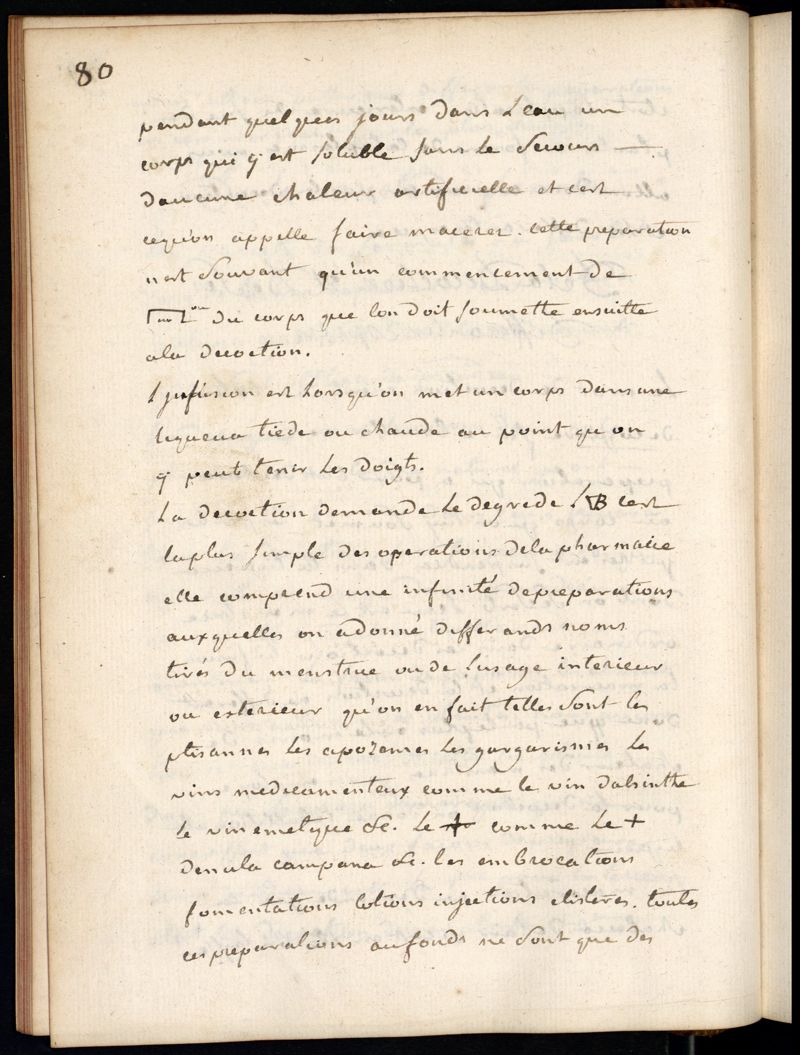 80
pendant quelques jours dans Leau un
corps qui y est soluble sans le secours —
daucune chaleur artificielle et cest
cequ'on appelle faire macerer. cette preparation
nest souvant qu'un commencement de
du corps que lon doit soumette ensuitte
ala decoction.
L'jnfusion est Lorsqu'on met un corps dans une
liqueur tiede ou chaude au point qu'on
y peut tenir Les doigts.
La decoction demande Le degre de cest
la plus simple des operations de la pharmacie
elle comprend une infinité de preparations
auxquelles on adonné differands noms
tirés du menstrue ou de Lusage interieur
ou esterieur qu'on en fait telles sont les
ptisannes les apozemes Les gargarismes les
vins medicamenteux comme le vin dabsinthe
le vin emetique &c. Le + comme Le +
denula campana &c. les embrocations
fomentations lotions injections clisteres. toutes
ces preparations aufonds ne sont que des